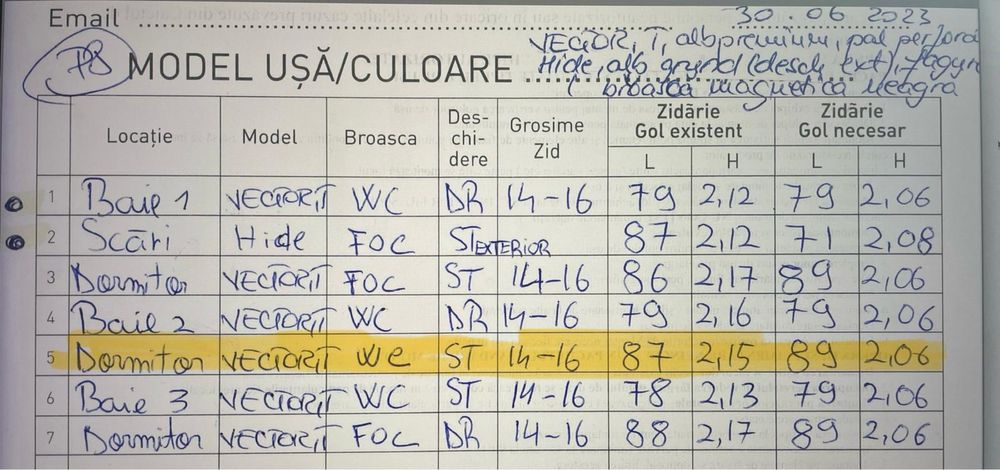 Email
30.06 2023
VECTOR, T, alb premium, pal perforat
MODEL UȘĂ/CULOARE Hide, alb grund (desch. ext),
broasca magnetica neagra
Locație Model Broasca Des-chi-dere Grosime Zid Zidărie Gol existent Zidărie Gol necesar
L H L H
1 Baie 1 VECTOR,T WC DR 14-16 79 2,12 79 2,06
2 Scări Hide FOC ST EXTERIOR 87 2,12 71 2,08
3 Dormitor VECTOR,T FOC ST 14-16 86 2,17 89 2,06
4 Baie 2 VECTOR,T WC DR 14-16 79 2,16 79 2,06
5 Dormitor VECTOR,T WC ST 14-16 87 2,15 89 2,06
6 Baie 3 VECTOR,T WC ST 14-16 78 2,13 79 2,06
7 Dormitor VECTOR,T FOC DR 14-16 88 2,17 89 2,06